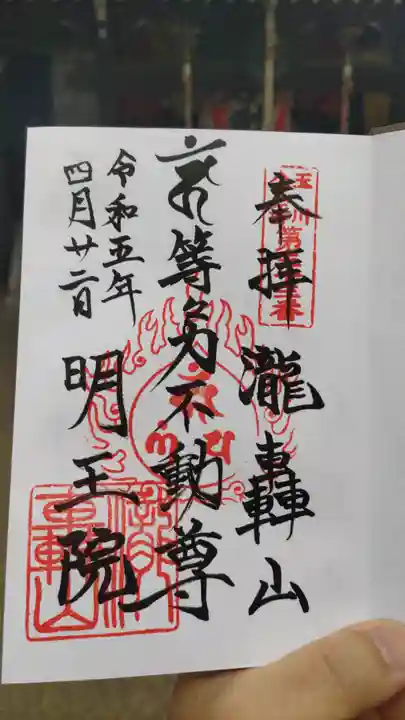 奉拝
瀧轟山
等々力不動尊
令和五年
四月廿二日
明王院